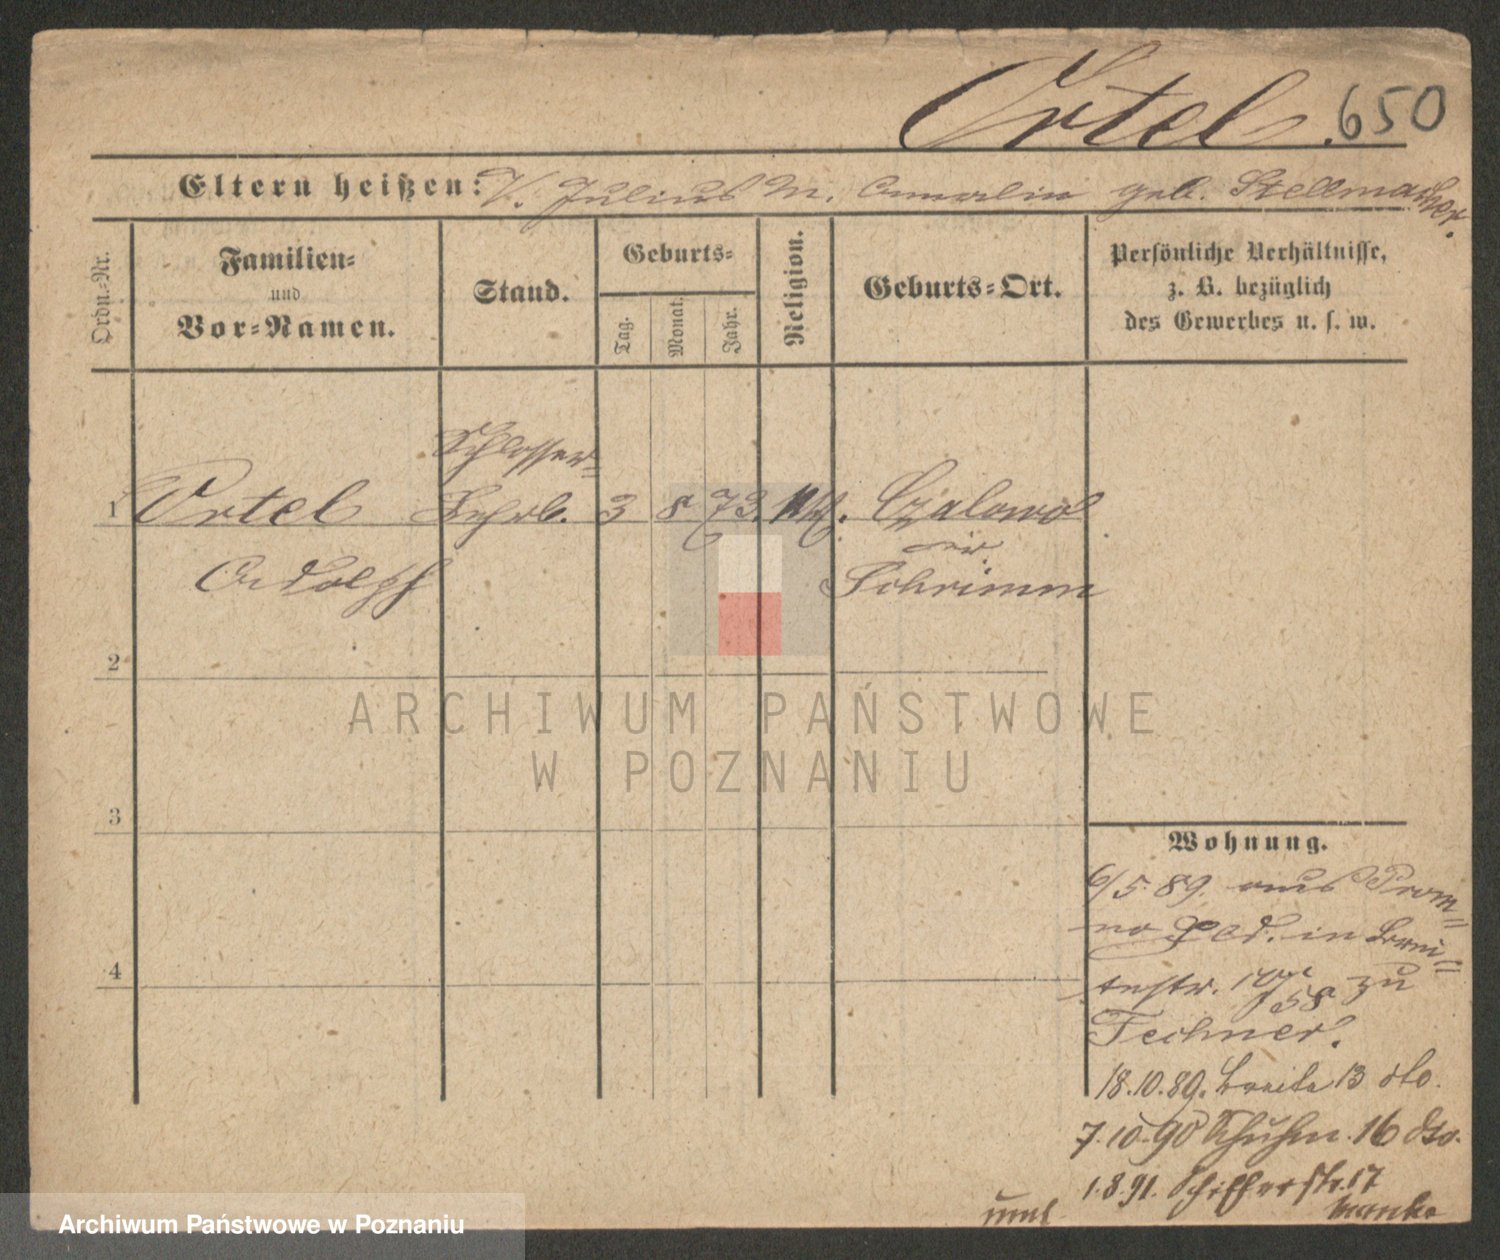 Ortel. 650
Eltern heißen: V. Julius M. Amalie geb. Stellmacher.
Ordn.-Nr.
Familien-
und
Vor-Namen.
Stand.
Geburts-
Tag.
Monat.
Jahr.
Religion.
Geburts-Ort.
Persönliche Verhältnisse,
z. B. bezüglich
des Gewerbes u. s. w.
Schlosser-
1 Ortel Lehrl. 3 8 73.
Adolph
Schrimm
2
3
4
Wohnung.
6/5 89. aus Prom-
no in Brei-
testr. zu
Fechner.
18.10.89. Breite 13 dto.
7.10.90 Schuhm. 16 dto.
1.8.91. Schifferstr. 17
ARCHIWUM PAŃSTWOWE
W POZNANIU
Archiwum Państwowe w Poznaniu